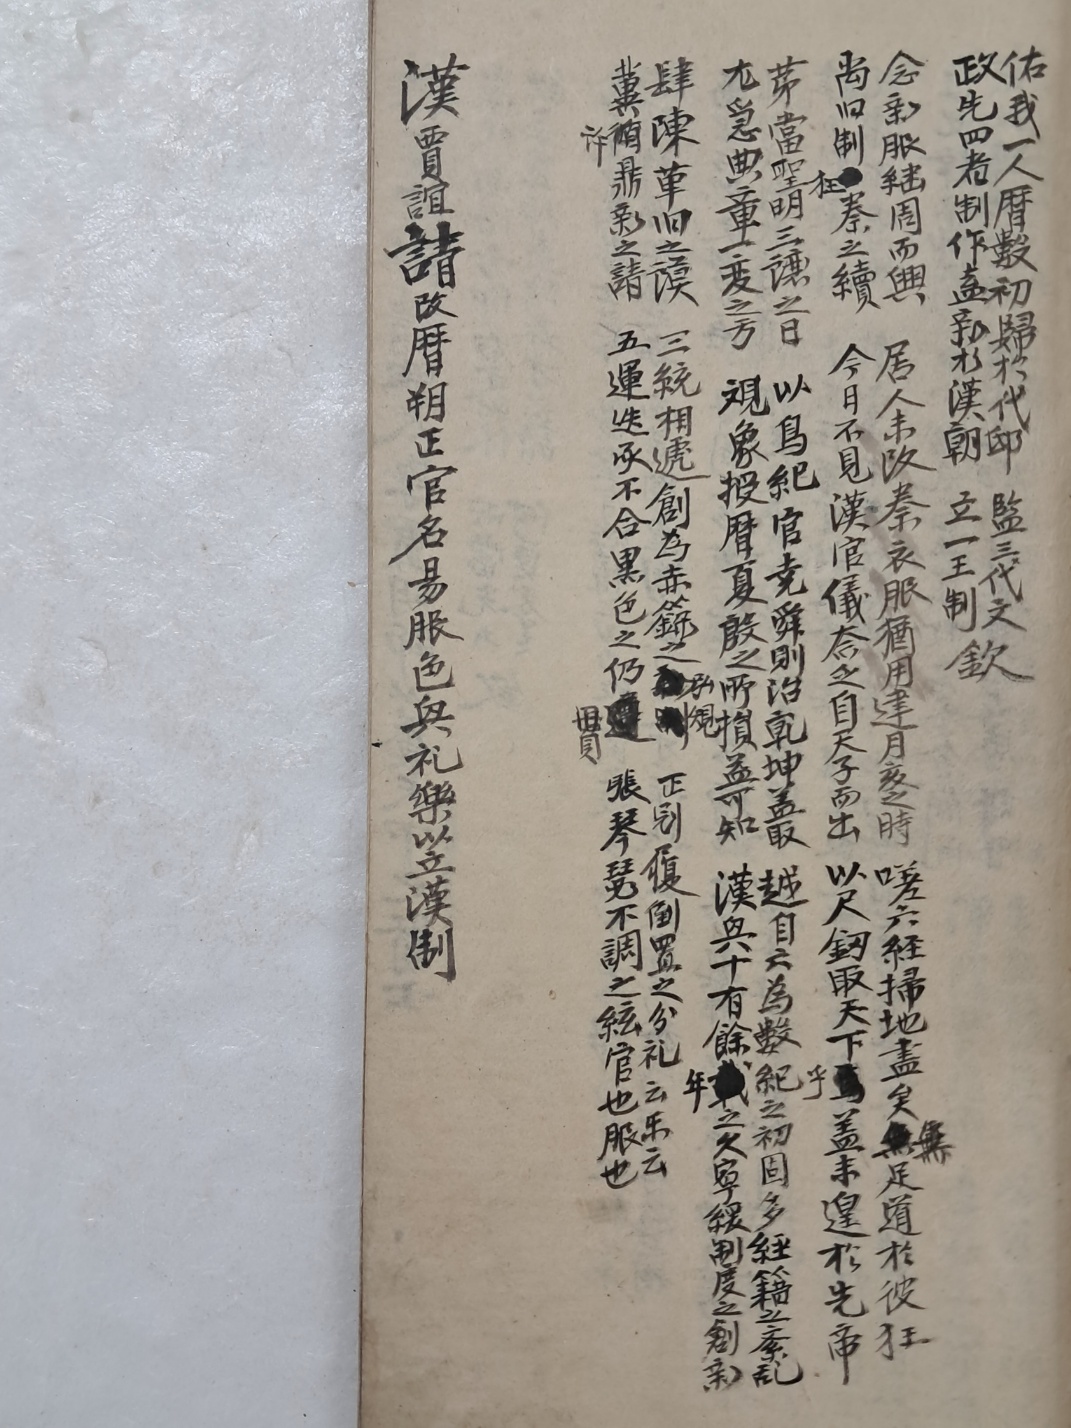 佑我一人曆數初歸於代邸 監三代文
政先四者制作盍新於漢朝 立一王制 欽
念新服繼周而興 居人未改秦衣服猶用建月亥之時 嗟六経掃地盡矣無足道於彼狂
尚旧制狂秦之續 今日不見漢官儀奈之自天子而出 以尺釰取天下乎盖未遑於先帝
茅當聖明三讓之日 以鳥紀官堯舜則治乾坤盖取 越自六為數紀之初固多経籍之紊乱
尤急典章一変之方 観象授曆夏殷之所損益可知 漢興十有餘年之久寧緩制度之創新
肆陳革旧之謨 三統相遞創為赤籙之 正刖履倒置之分礼云乐云
冀許鼎新之請 五運迭承不合黒色之仍貫 張琴瑟不調之絃官也服也
漢賈誼請改曆朔正官名易服色興礼樂以立漢制